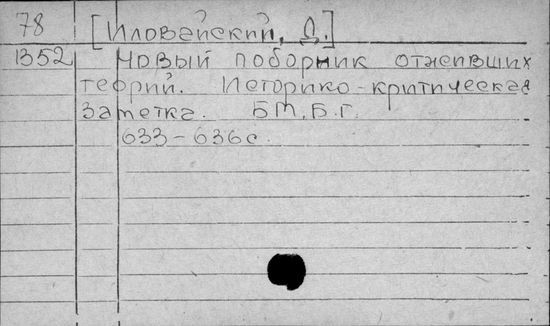 78 [Иловайский, Д.]
1352 Новый поборник отживших
теорий. Историко-критическая
заметка. БМ, Б.г.
633-636с.